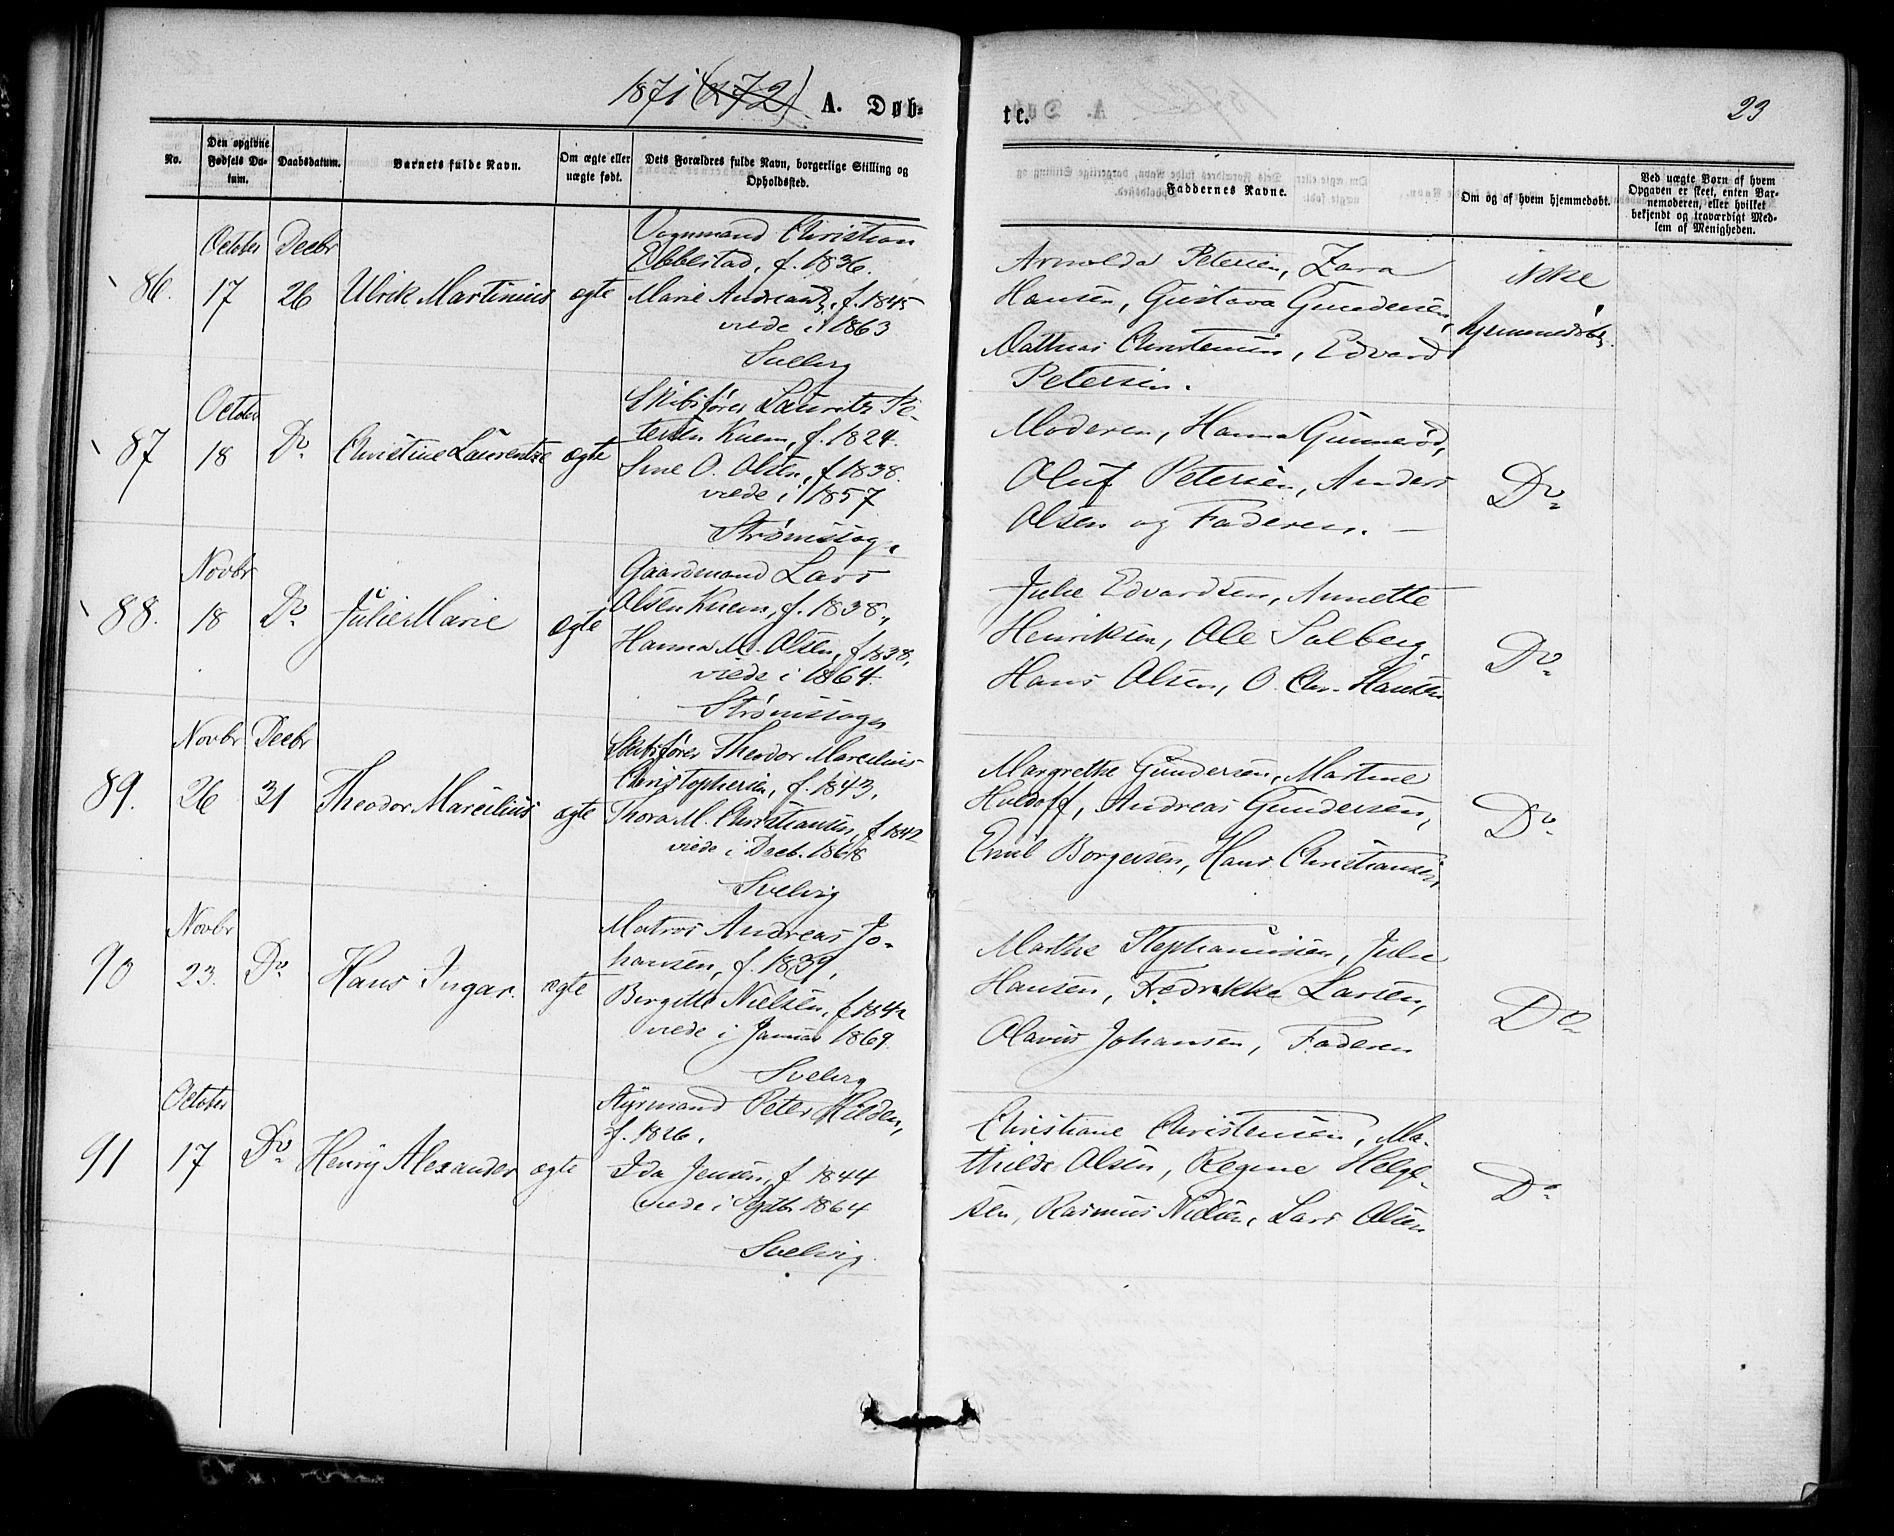 1871 (& 72) A. Døb-
te. 23
No.
Den opgivne Fødsels Da-tum.
Daabsdatum.
Barnets fulde Navn.
Om ægte eller uægte født.
Dets Forældres fulde Navn, borgerlige Stilling og Opholdssted.
Faddernes Navne.
Om og af hvem hjemmedøbt.
Ved uægte Børn af hvem Opgaven er skeet, enten Bar-nemoderen, eller hvilket bekjendt og troværdigt Med-lem af Menigheden.
October Decbr
86. 17 26 Ulrik Martinius ægte
Vognmand Christian
Ebbestad, f. 1836.
Marie f. 1845
viede i 1863
Svelvig
Arnolda Petersen, Zara
Hansen, Gustava Gundersen,
Mathias Christensen, Edvard
Petersen.
Ikke
hjemmedøbt.
October
87 18 Do. Christine Laurentze ægte
Skibsfører Lauritz Pe-
tersen Knem, f. 1824.
Sine O. Olsen, f 1838.
viede i 1857
Strømssog.
Moderen, Hanna Gunnerød,
Oluf Petersen, Anders
Olsen og Faderen. —
Do.
Novbr
88. 18 Do. Julie Marie ægte
Gaardmand Lars
Olsen Knem, f. 1838.,
Hanna M. Olsen, f 1838,
viede i 1864.
Strømssogn
Julie Edvardsen, Annette
Henriksen, Ole Solberg,
Hans Olsen, O. Chr. Hansen
Do.
Novbr Decbr
89. 26 31 Theodor Marcilius ægte
Skibsfører Theodor Marcilius
Christophersen, f. 1843.
Thora M. Christiansen, f 1842
viede i Decb. 1868
Svelvig
Margrethe Gundersen, Martine
Hvidoff, Andreas Gundersen,
Emil Borgersen, Hans Christiansen
Do.
Novbr
90 23. Do Hans Ingar. ægte
Matros Andreas Jo-
hansen, f. 1839,
Bergitte Nielsen, f 1842
viede i Januar 1869.
Svelvig
Marthe Stephansen, Julie
Hansen, Fredrikke Larsen,
Olavus Johansen, Faderen
Do.
October
91 17 Do. Henry Alexander ægte
Styrmand Peter Hilden,
f. 1826.
Ida Jensen, f 1844
viede i Septb. 1864
Svelvig.
Christiane Christensen, Ma-
thilde Olsen, Regine Helge-
sen, Rasmus Nielsen, Lars Olsen
Do.